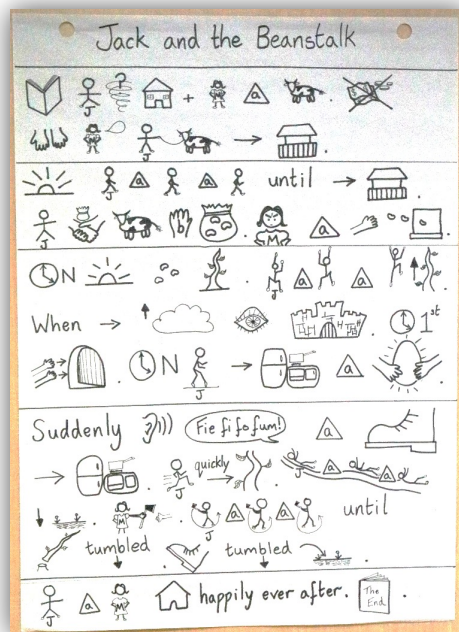 Jack and the Beanstalk
J + M a
M J
J a a until
J M a
N J a a
When 1st
N J a
Suddenly Fie fi fo fum! a
J quickly J a a
M J a a until
tumbled tumbled
J a M happily ever after. The End